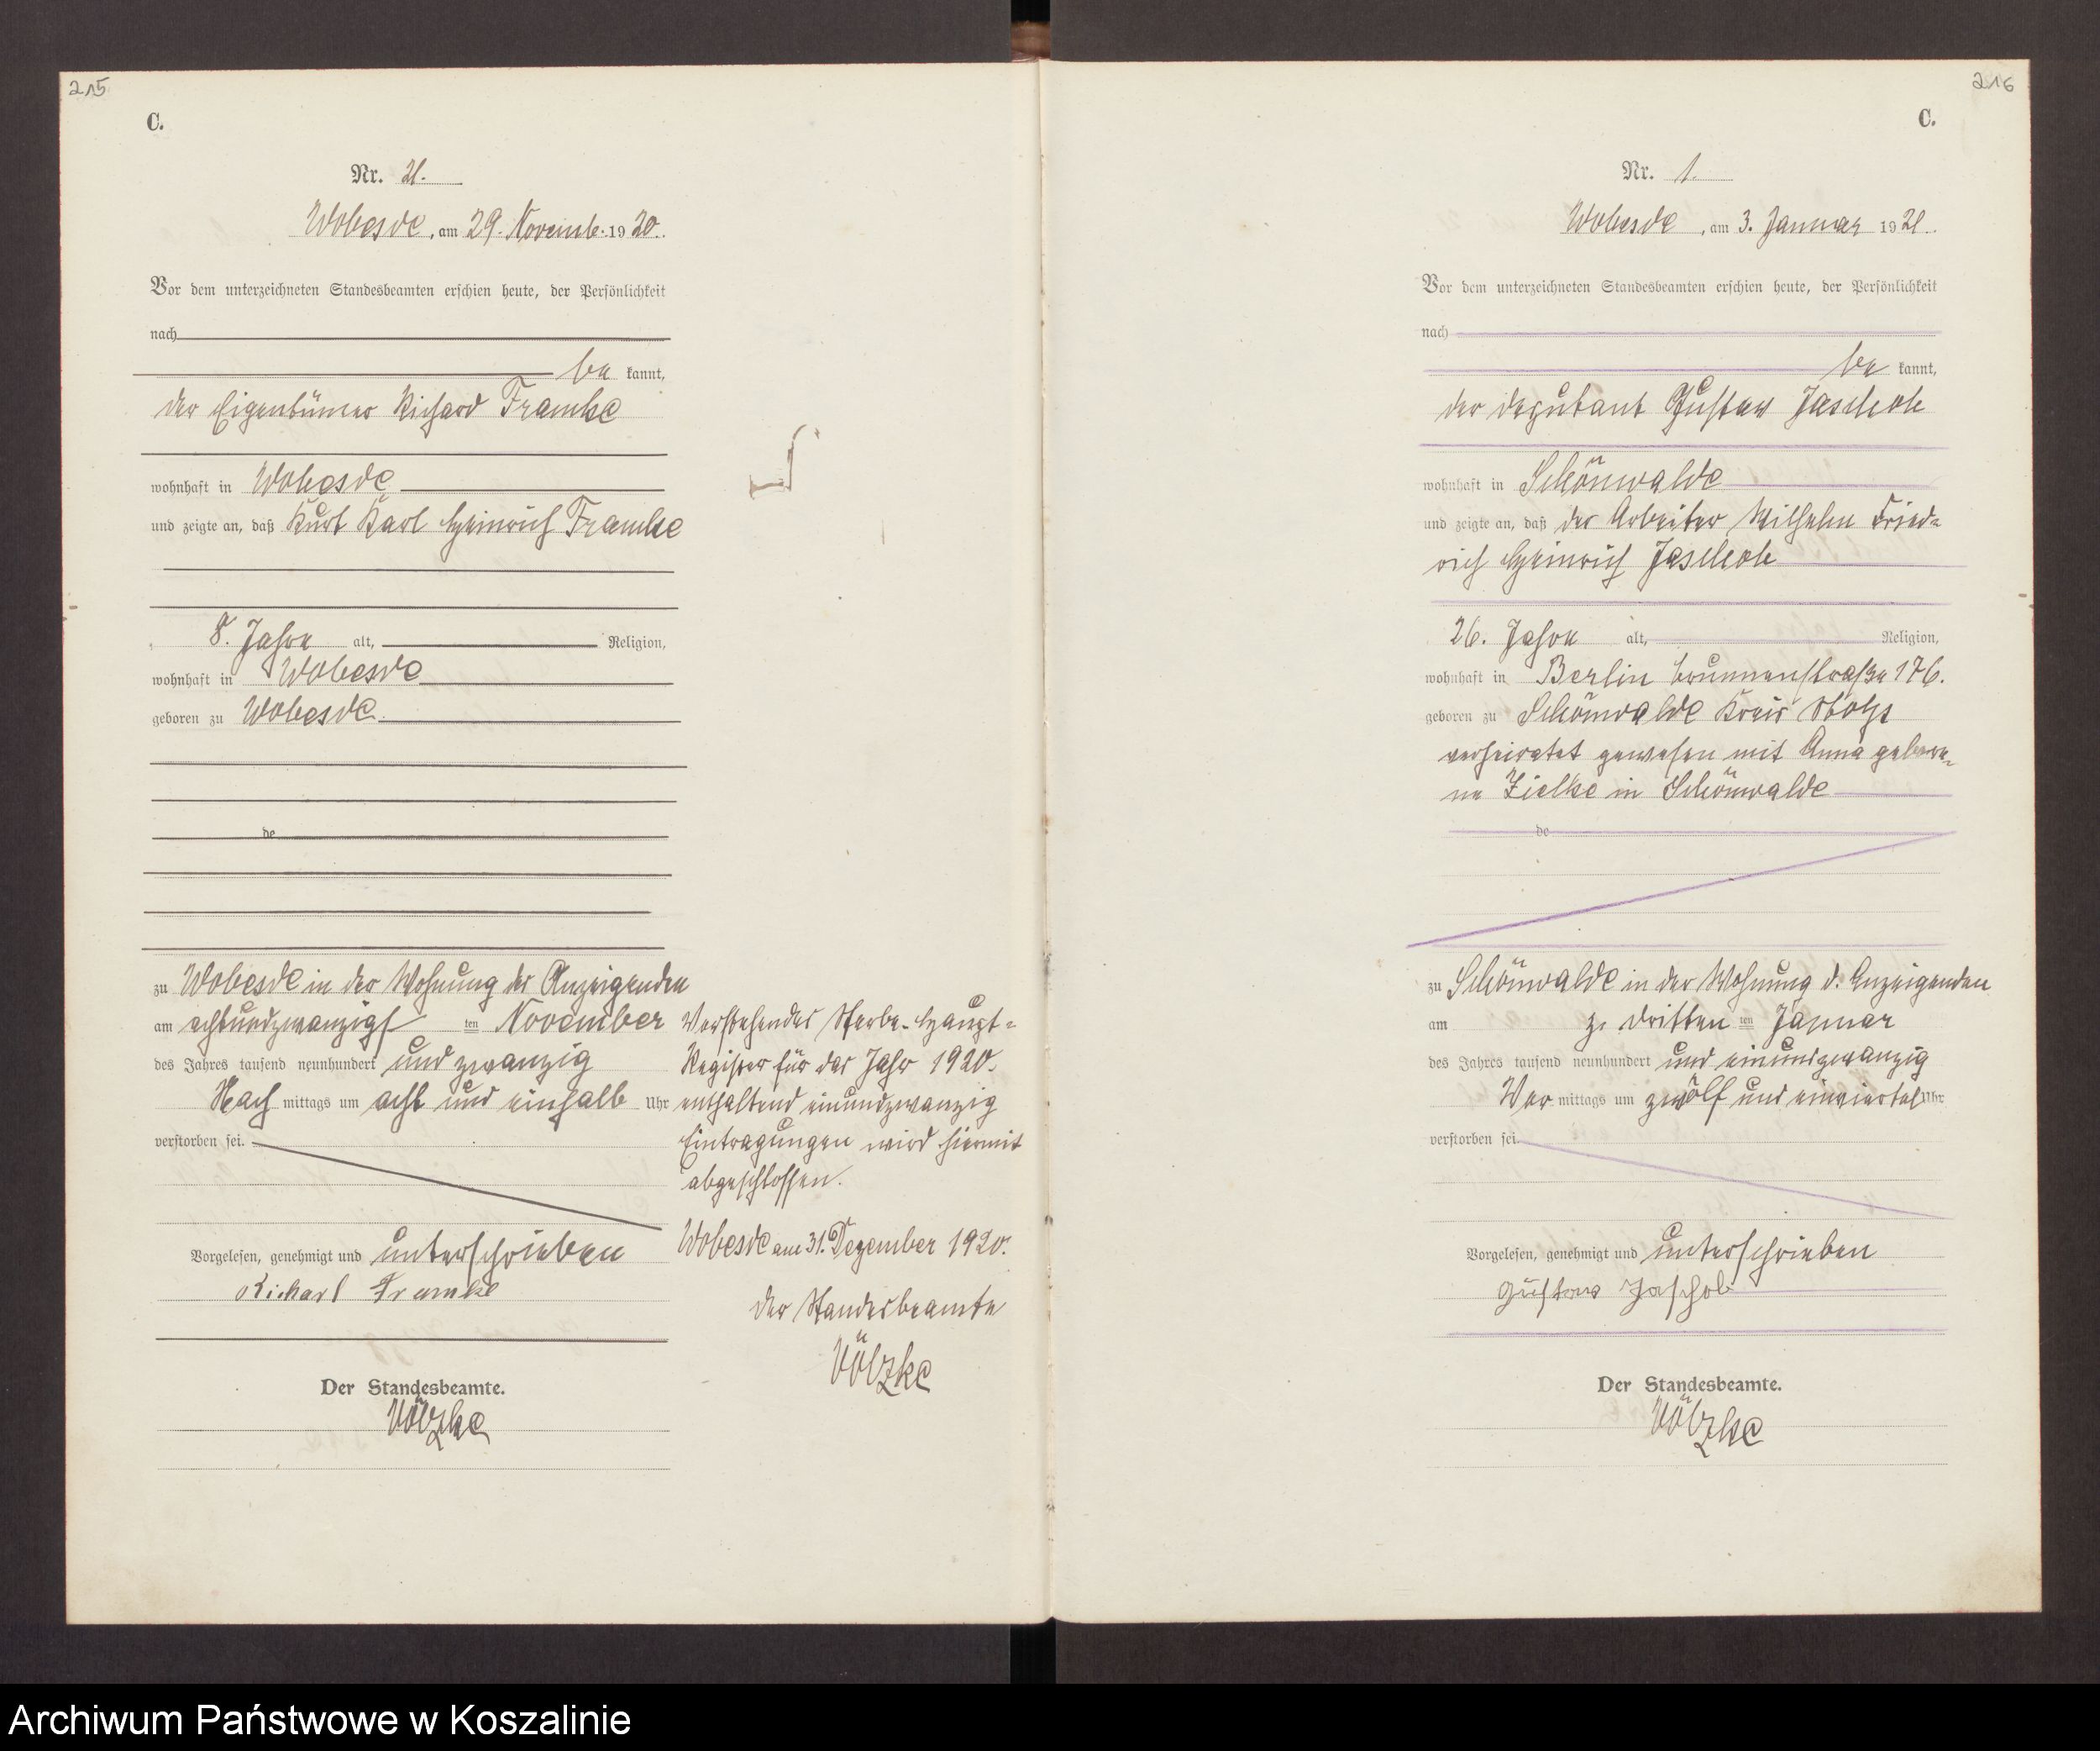 215
C.
Nr. 21.
Wobesde, am 29. Novemb. 1920.
Vor dem unterzeichneten Standesbeamten erschien heute, der Persönlichkeit
nach
be kannt,
der Eigentümer Richard Framke
wohnhaft in Wobesde
und zeigte an, daß Kurt Karl Heinrich Framke
8. Jahre alt, Religion,
wohnhaft in Wobesde
geboren zu Wobesde.
de
zu Wobesde in der Wohnung des Anzeigenden
am achtundzwanzigs ten November
des Jahres tausend neunhundert und zwanzig
Nach mittags um acht und einhalb Uhr
verstorben sei.
Vorgelesen, genehmigt und unterschrieben
Richard Framke
Der Standesbeamte.
Völzke
Vorstehendes Sterbe-Haupt-
Register für das Jahr 1920.
enthaltend einundzwanzig
Eintragungen wird hiermit
abgeschlossen.
Wobesde am 31. Dezember 1920.
Der Standesbeamte
Völzke
216
C.
Nr. 1.
Wobesde, am 3. Januar 1921.
Vor dem unterzeichneten Standesbeamten erschien heute, der Persönlichkeit
nach
be kannt,
der Deputant Gustav Jaschok
wohnhaft in Schönwalde
und zeigte an, daß der Arbeiter Wilhelm Fried=
rich Heinrich Jaschok
26. Jahre alt, Religion,
wohnhaft in Berlin Brunnenstraße 176.
geboren zu Schönwalde Kreis Stolp
verheiratet gewesen mit Anna gebore=
ne Zielke in Schönwalde
de
zu Schönwalde in der Wohnung d. Anzeigenden
am dritten ten Januar
des Jahres tausend neunhundert und einundzwanzig
Vor mittags um zwölf und einviertel Uhr
verstorben sei.
Vorgelesen, genehmigt und unterschrieben
Gustav
Der Standesbeamte.
Völzke
Archiwum Państwowe w Koszalinie